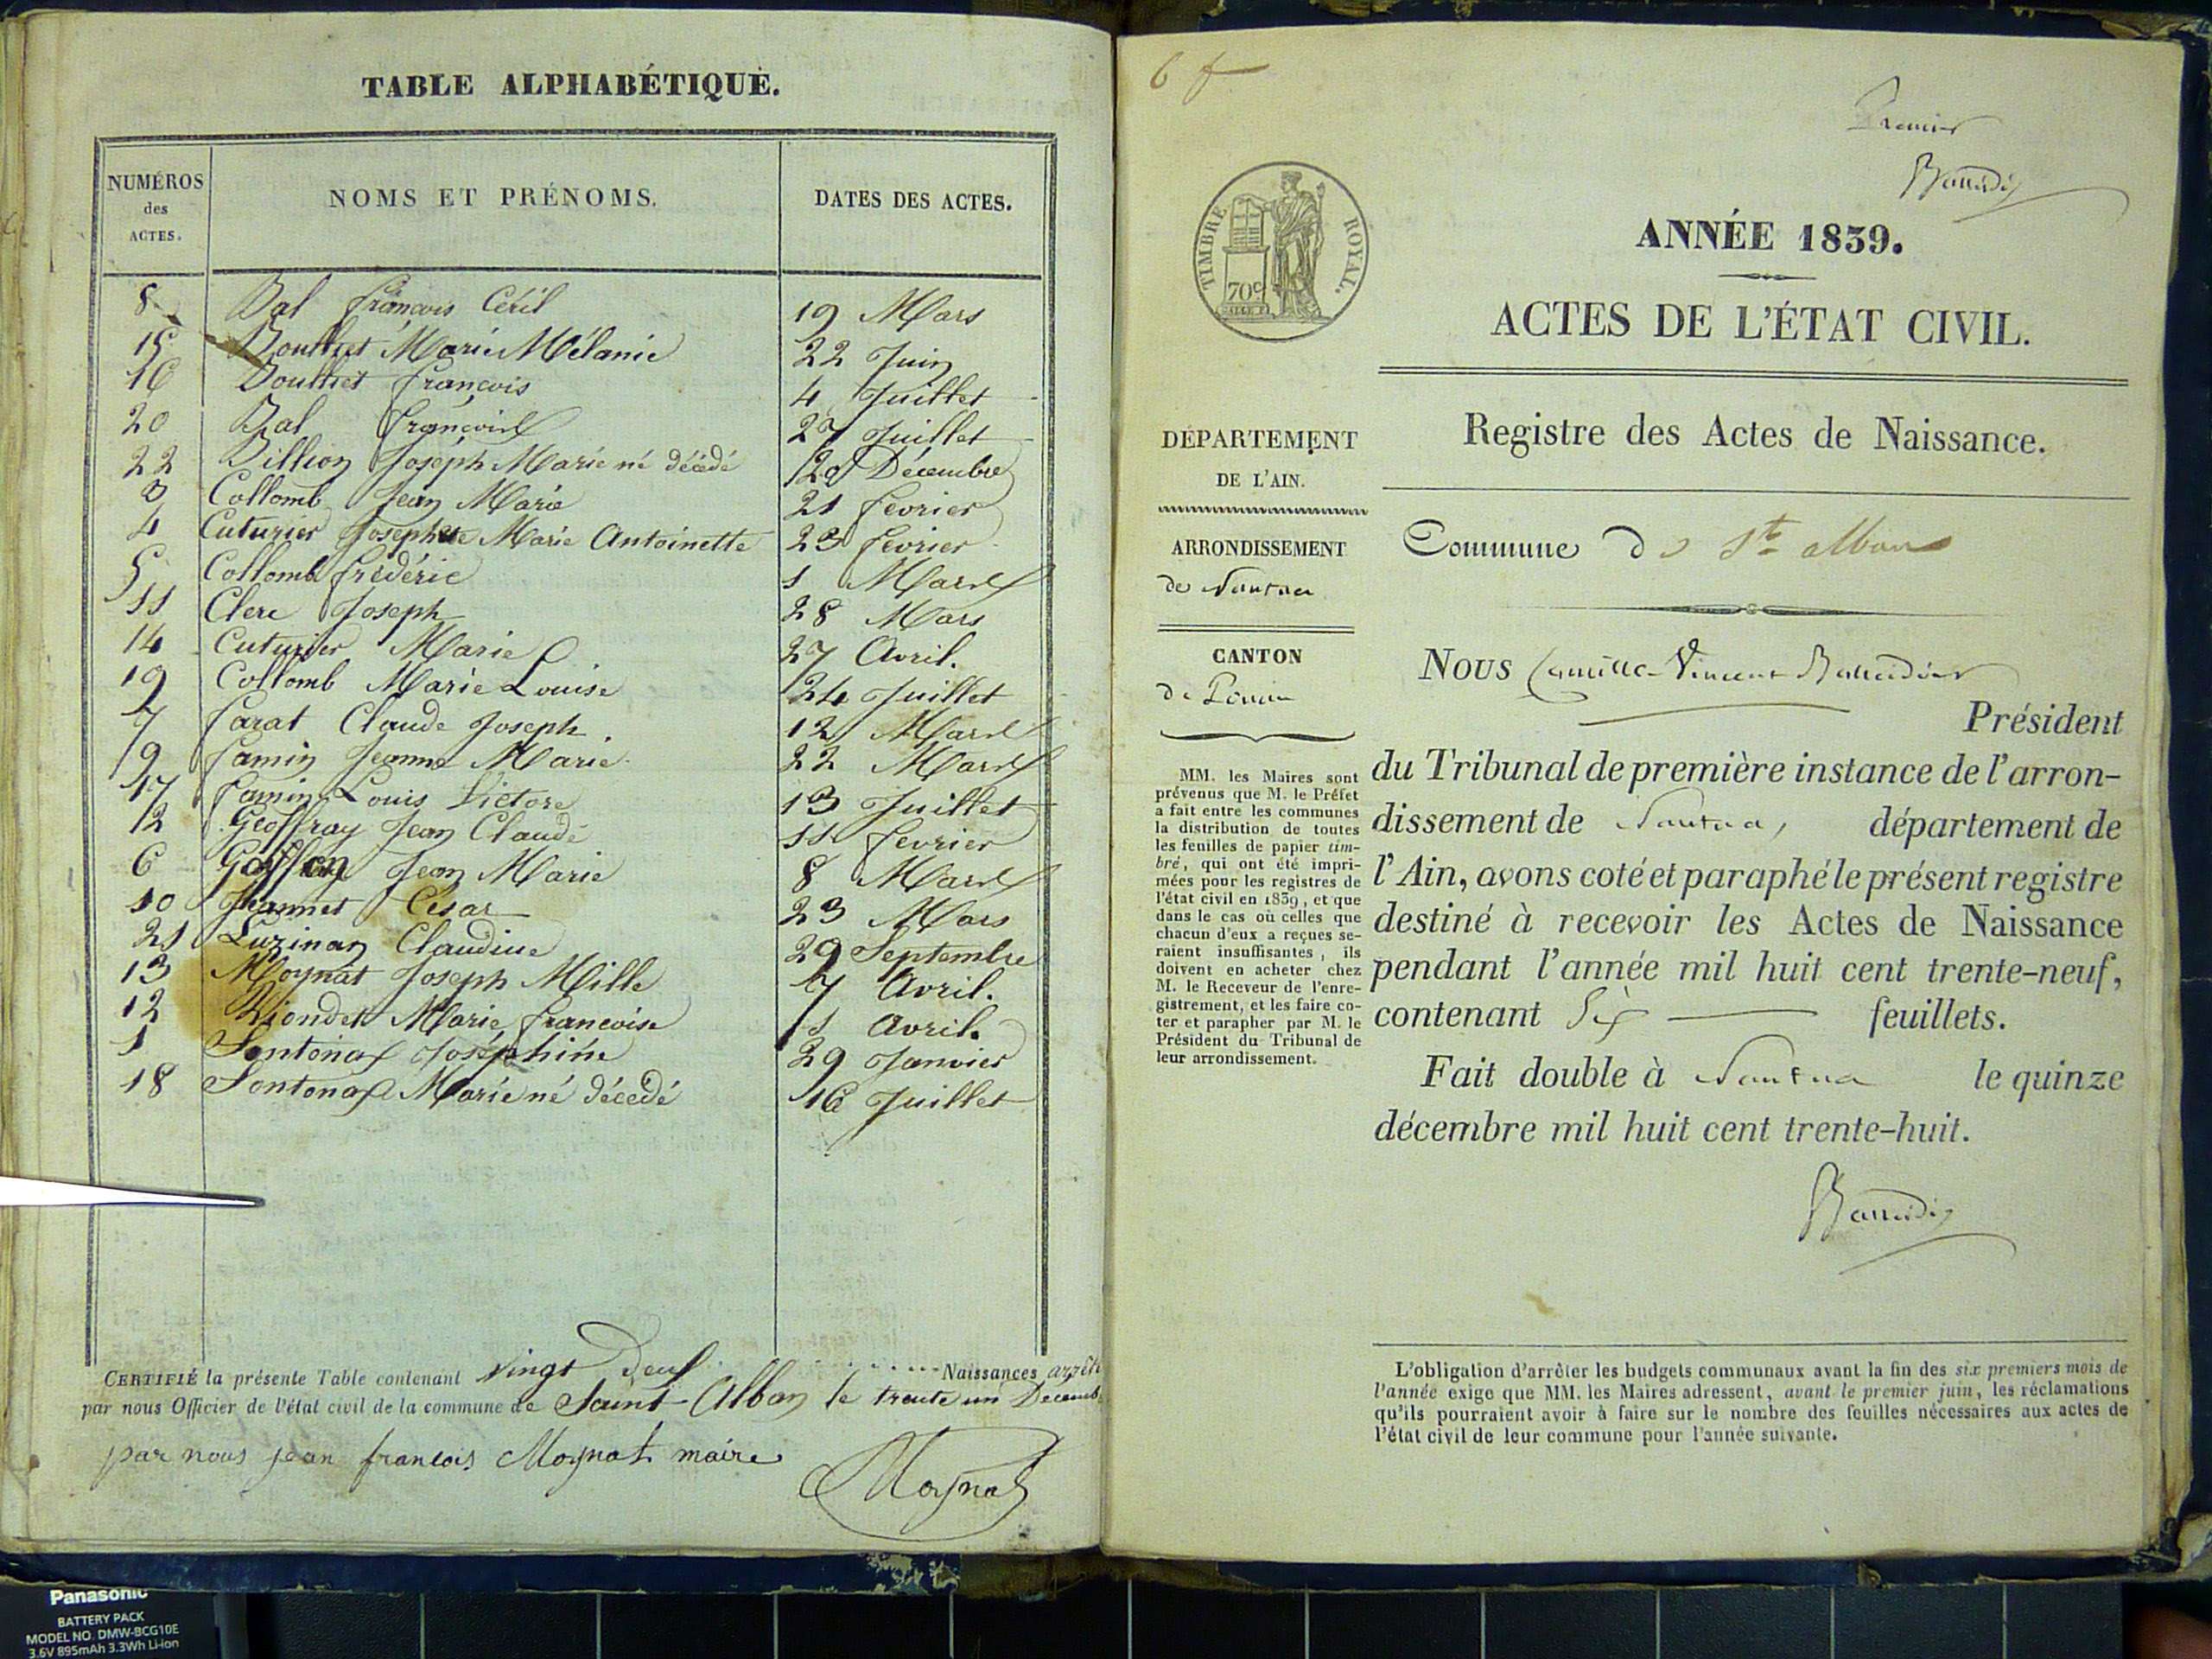 TABLE ALPHABÉTIQUE.
NUMÉROS des ACTES. NOMS ET PRÉNOMS. DATES DES ACTES.
8 Bal françois 19 Mars
15 Bouthet Marie Mélanie 22 Juin
16 Bouthet françois 4 Juillet
20 Bal 27 Juillet
22 Billion Joseph Marie né décédé Décembre
3 Collomb Jean Marie 21 fevrier
4 Cuturier Marie Antoinette 23 fevrier
5 Collomb frédéric 1 Mars
11 Clerc Joseph 28 Mars
14 Cuturier Marie 27 Avril.
19 Collomb Marie Louise 24 Juillet
7 farat Claude Joseph 12 Mars
9 famin Jeanne Marie 22 Mars
17 famin Louis Victore 13 Juillet
2 Geoffray Jean Claude 11 fevrier
6 Jean Marie 8 Mars
10 Jeannet César 23 Mars
21 Luzinan Claudine 29 Septembre
13 Moynat Joseph Mille 7 Avril.
12 Riondet Marie francoise 1 Avril.
1 Sontonax Joséphine 29 Janvier
18 Sontonax Marie né décédé 16 Juillet
CERTIFIÉ la présente Table contenant vingt deux Naissances
par nous Officier de l'état civil de la commune de Saint-Alban le trente un Decemb
par nous jean francois Moynat maire
Moynat
6 f
Premier
TIMBRE ROYAL.
70c
ANNÉE 1839.
ACTES DE L'ÉTAT CIVIL.
DÉPARTEMENT
DE L'AIN.
ARRONDISSEMENT
de Nantua
CANTON
de Poncin
MM. les Maires sont
prévenus que M. le Préfet
a fait entre les communes
la distribution de toutes
les feuilles de papier tim-
bré, qui ont été impri-
mées pour les registres de
l'état civil en 1839, et que
dans le cas où celles que
chacun d'eux a reçues se-
raient insuffisantes, ils
doivent en acheter chez
M. le Receveur de l'enre-
gistrement, et les faire co-
ter et parapher par M. le
Président du Tribunal de
leur arrondissement.
Registre des Actes de Naissance.
Commune de St alban
Nous Camille-Vincent
Président
du Tribunal de première instance de l'arron-
dissement de Nantua, département de
l'Ain, avons coté et paraphé le présent registre
destiné à recevoir les Actes de Naissance
pendant l'année mil huit cent trente-neuf,
contenant Six feuillets.
Fait double à Nantua le quinze
décembre mil huit cent trente-huit.
L'obligation d'arrêter les budgets communaux avant la fin des six premiers mois de
l'année exige que MM. les Maires adressent, avant le premier juin, les réclamations
qu'ils pourraient avoir à faire sur le nombre des feuilles nécessaires aux actes de
l'état civil de leur commune pour l'année suivante.
Panasonic
BATTERY PACK
MODEL NO. DMW-BCG10E
3.6V 895mAh 3.3Wh Li-ion